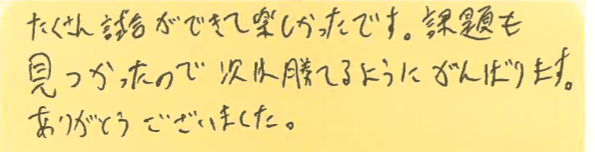 たくさん試合ができて楽しかったです。課題も
見つかったので次は勝てるようにがんばります。
ありがとうございました。